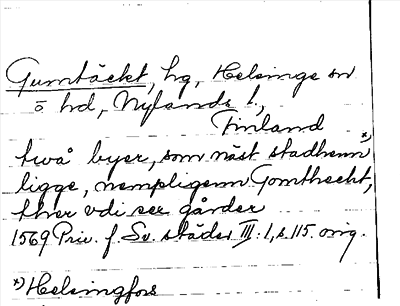 Gumtäckt, hg, Helsinge sn
o hd, Nylands l.,
Finland
två byer, som näst stadhenn *)
ligge, nempligenn Gomtheckt,
ther vdi ser gårder
1569 Priv. f. Sv. städer III:1, s. 115. orig.
*) Helsingfors